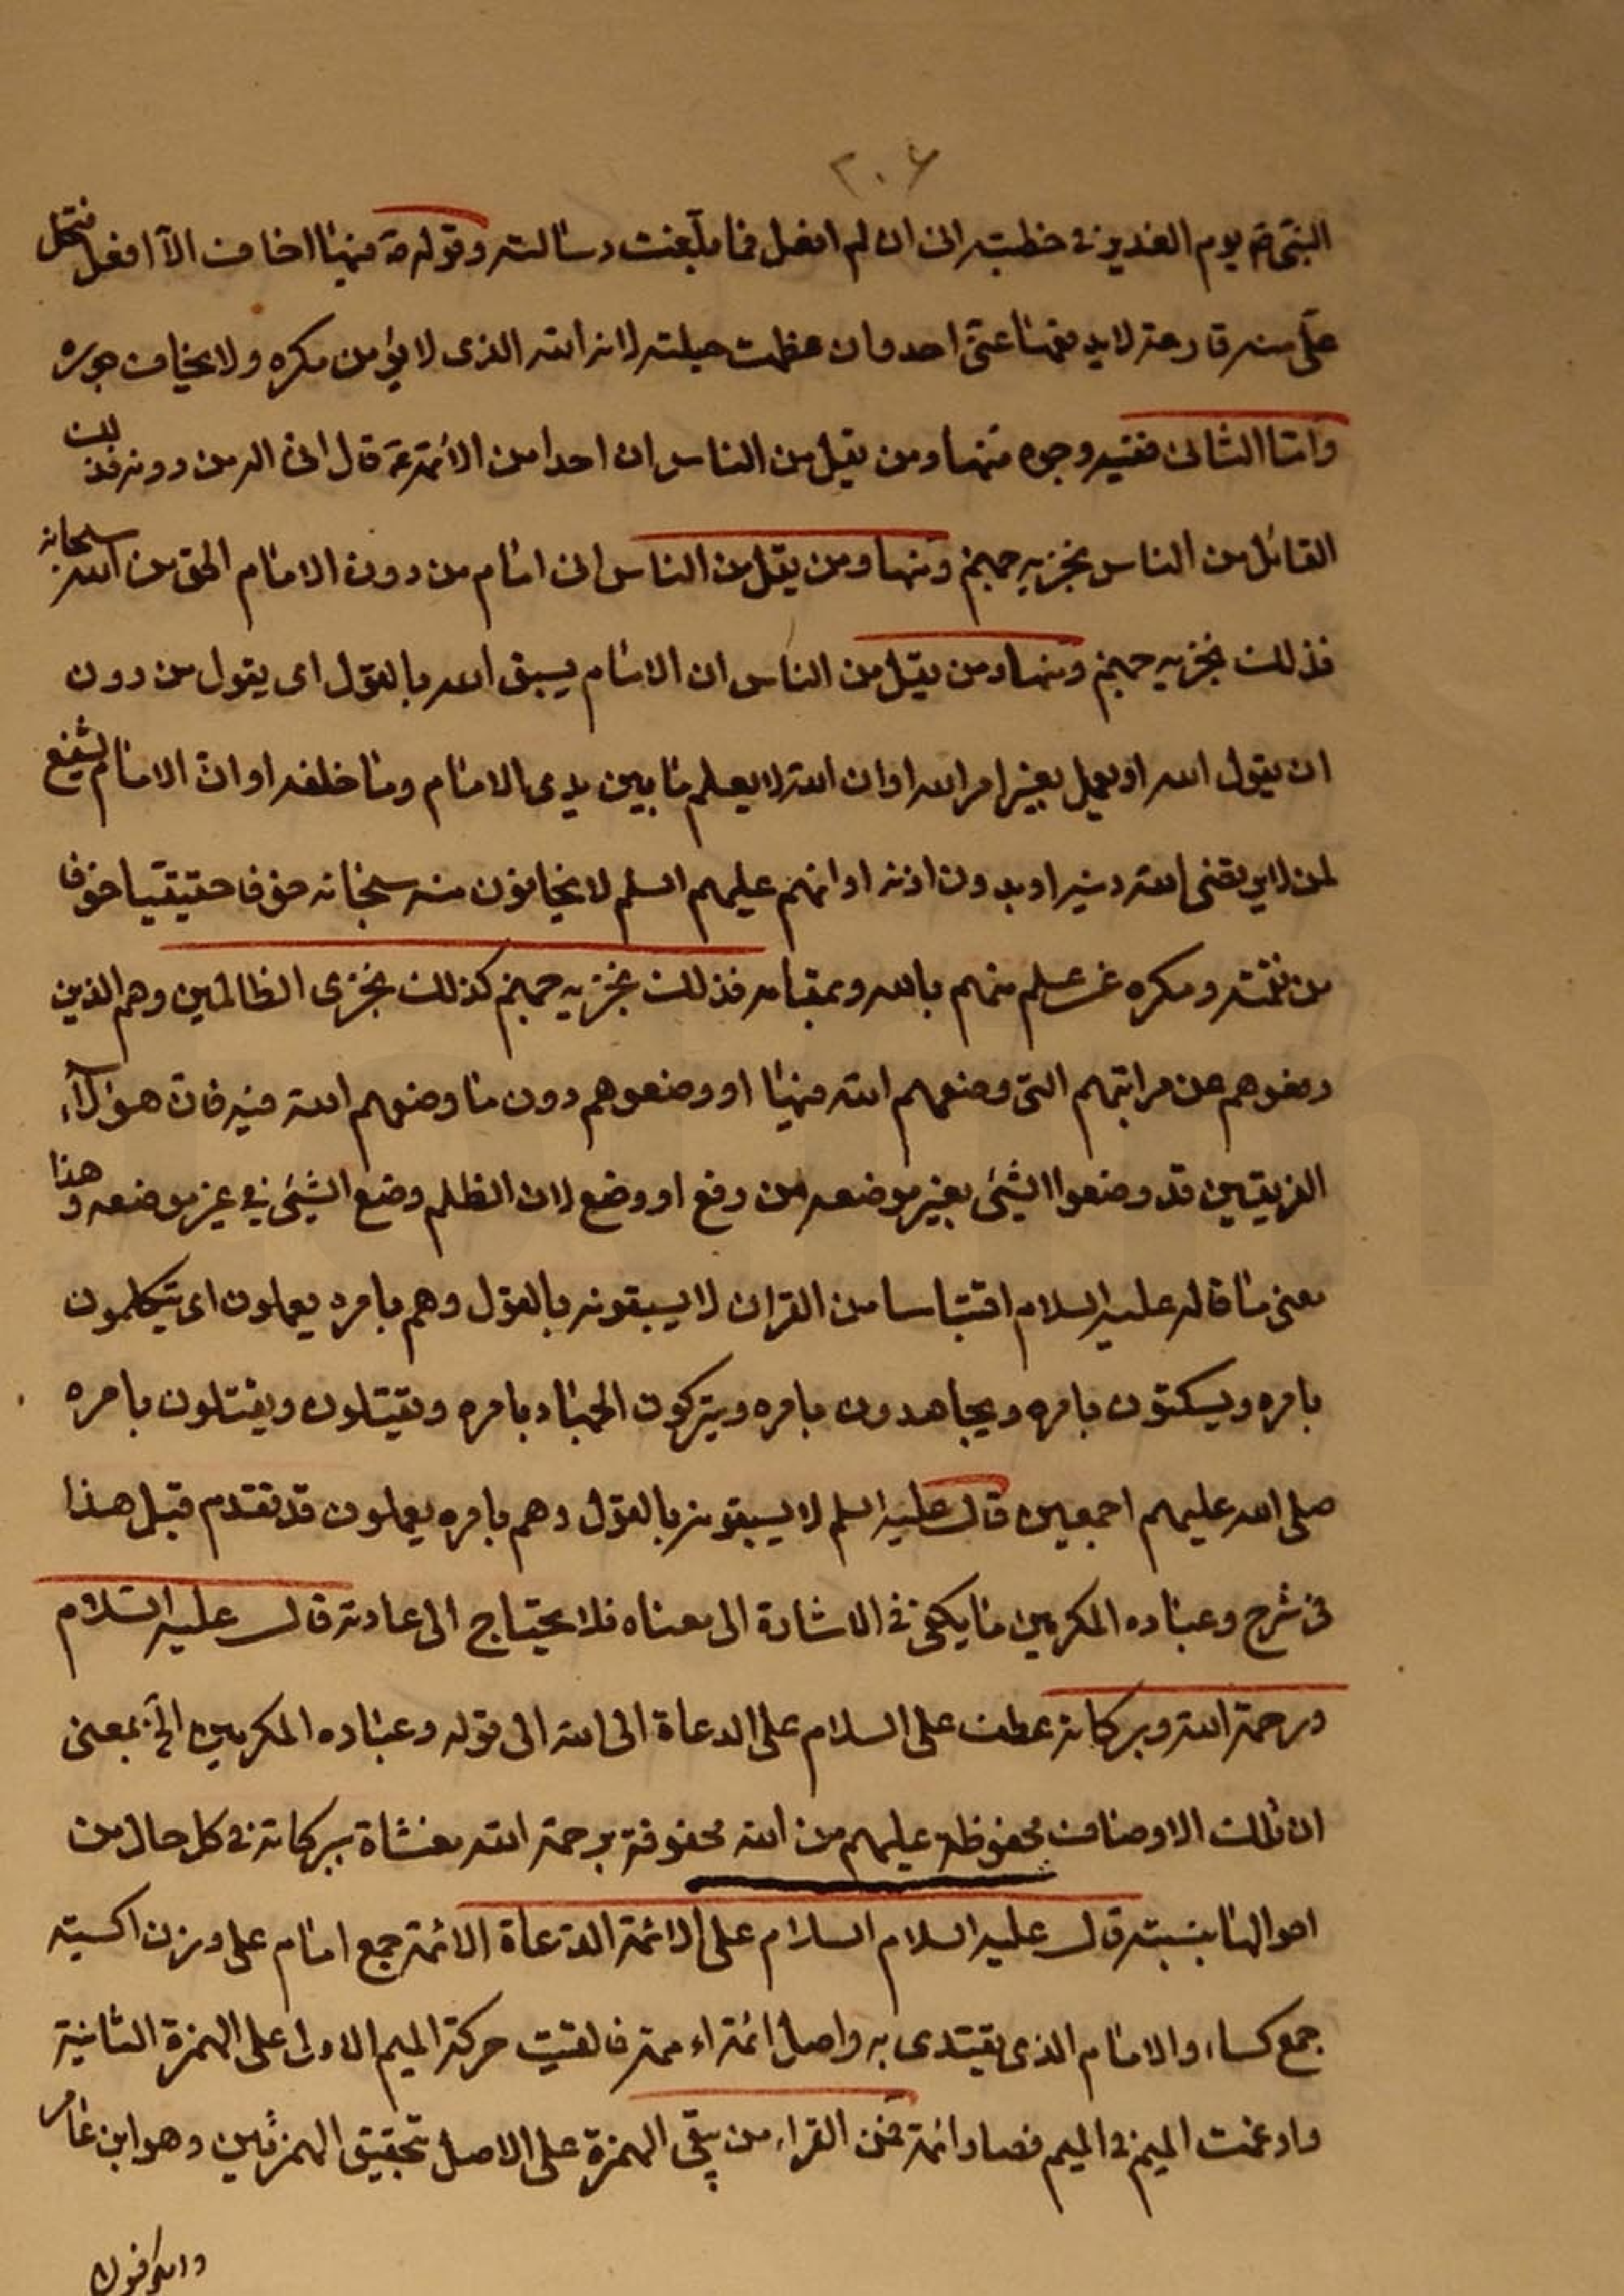 ٢٠٦
النبي ص يوم الغدير في خطبته اني ان لم افعل فما بلغت رسالته وقوله ص فيها اخاف الا افعل فتحل
علي منه قارعة لا يدفعها عني احد وان عظمت حيلته لانه الله الذي لا يؤمن مكره ولا يخاف جوره
وامّا الثاني ففيه وجوه منها ومن يقل من الناس ان احدا من الائمة ع قال اني اله من دونه فذلك
القائل من الناس نجزيه جهنم ومنها ومن يقل من الناس اني امام من دون الامام الحق من الله سبحانه
فذلك نجزيه جهنم ومنها ومن يقل من الناس ان الامام يسبق الله بالقول اي يقول من دون
ان يقول الله او يعمل بغير امر الله او ان الله لا يعلم ما بين يدي الامام وما خلفه او ان الامام يشفع
لمن لا يرتضي الله دينه او بدون اذنه او انهم عليهم السلم لا يخافون منه سبحانه خوفا حقيقيا خوف
من نقمته ومكره عن علم منهم بالله وبمقامه فذلك نجزيه جهنم كذلك نجزي الظالمين وهم الذين
رفعوهم عن مراتبهم التي وضعهم الله فيها او وضعوهم دون ما وضعهم الله فيه فان هؤلآء
الفريقين قد وضعوا الشئ بغير موضعه من رفع او وضع لان الظلم وضع الشئ في غير موضعه وهذا
معنى ما قاله عليه السلام اقتباسا من القران لا يسبقونه بالقول وهم بامره يعملون اي يتكلمون
بامره ويسكتون بامره ويجاهدون بامره ويتركون الجهاد بامره ويقتلون ويقتلون بامره
صلى الله عليهم اجمعين قال عليه السلم لا يسبقونه بالقول وهم بامره يعملون قد تقدم قبل هذا
في شرح وعباده المكرمين ما يكفي في الاشارة الى معناه فلا يحتاج الى عادته قال عليه السلام
ورحمة الله وبركاته عطف على السلام على الدعاة الى الله الى قوله وعباده المكرمين الخ بمعنى
ان تلك الاوصاف محفوظة عليهم من الله محفوفة برحمة الله مغشاة ببركاته في كل حال من
احوالها بنسبته قال عليه السلام السلام على الائمة الدعاة الائمة جمع امام على وزن اكسية
جمع كساء والامام الذي يقتدى به واصل ائمة اءممة فالقيت حركة الميم الاولى على الهمزة الثانية
وادغمت الميم في الميم فصار ائمة فمن القراء من يبقي الهمزة على الاصل بتحقيق الهمزتين وهو ابن عامر
والكوفيون